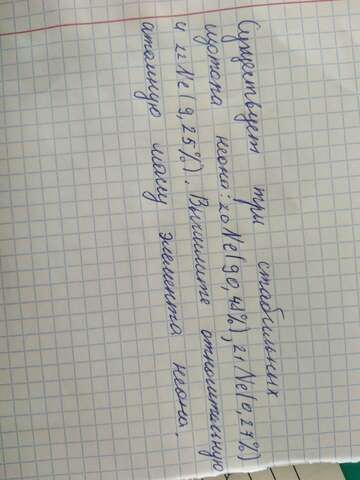 Существует три стабильных
изотопа неона: 20Ne(90,48%), 21Ne(0,27%)
и 22Ne(9,25%). Вычислите относительную
атомную массу элемента неона.